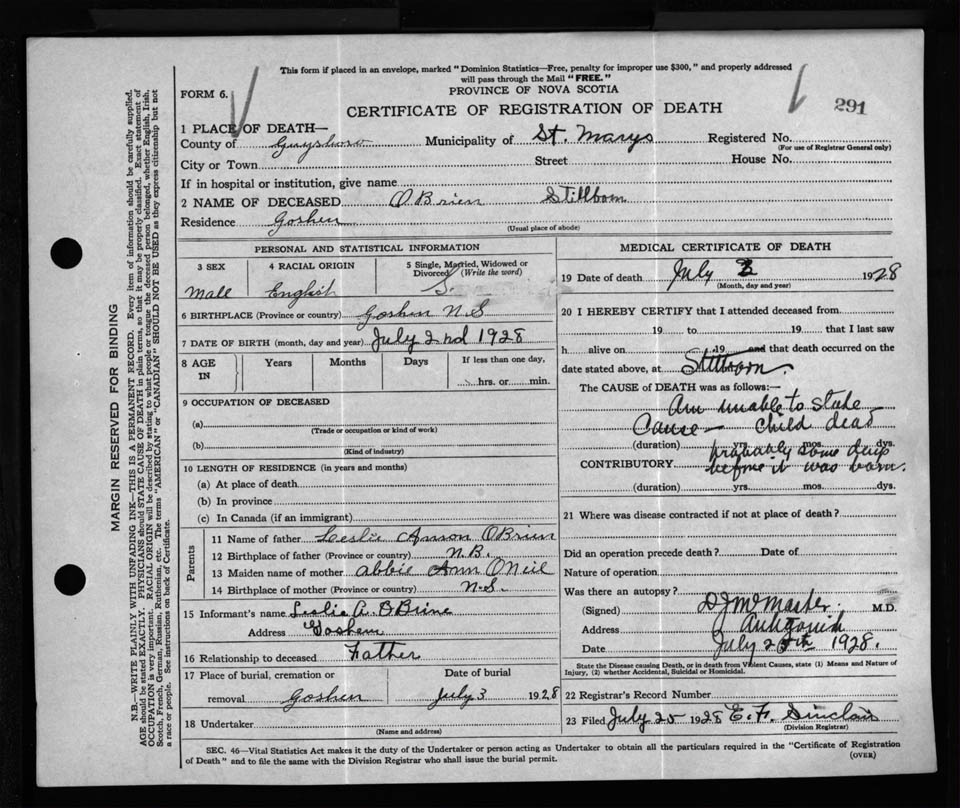 This form if placed in an envelope, marked "Dominion Statistics—Free, penalty for improper use $300," and properly addressed
will pass through the Mail "FREE."
FORM 6.
PROVINCE OF NOVA SCOTIA
CERTIFICATE OF REGISTRATION OF DEATH
291
1 PLACE OF DEATH—
County of Guysboro Municipality of St. Marys Registered No.
(For use of Registrar General only)
City or Town Street House No.
If in hospital or institution, give name
2 NAME OF DECEASED OBrien Stillborn
Residence Goshen
(Usual place of abode)
PERSONAL AND STATISTICAL INFORMATION
3 SEX 4 RACIAL ORIGIN 5 Single, Married, Widowed or
Divorced (Write the word)
Male English S.
6 BIRTHPLACE (Province or country) Goshen N.S
7 DATE OF BIRTH (month, day and year) July 2nd 1928
8 AGE IN Years Months Days If less than one day,
hrs. or min.
9 OCCUPATION OF DECEASED
(a)
(Trade or occupation or kind of work)
(b)
(Kind of industry)
10 LENGTH OF RESIDENCE (in years and months)
(a) At place of death
(b) In province
(c) In Canada (if an immigrant)
Parents
11 Name of father Leslie Anson OBrien
12 Birthplace of father (Province or country) N.B.
13 Maiden name of mother Abbie Ann ONeil
14 Birthplace of mother (Province or country) N.S.
15 Informant's name Leslie A. OBrine
Address Goshen
16 Relationship to deceased Father
17 Place of burial, cremation or Date of burial
removal Goshen July 3 1928
18 Undertaker
(Name and address)
MEDICAL CERTIFICATE OF DEATH
19 Date of death July 2 1928
(Month, day and year)
20 I HEREBY CERTIFY that I attended deceased from
19 to 19 that I last saw
h alive on 19 and that death occurred on the
date stated above, at Stillborn.
The CAUSE OF DEATH was as follows:—
Am unable to state
Cause — child dead
(duration) yrs. mos. dys.
probably some days
CONTRIBUTORY before it was born.
(duration) yrs. mos. dys.
21 Where was disease contracted if not at place of death?
Did an operation precede death? Date of
Nature of operation
Was there an autopsy?
(Signed) D J McMaster, M.D.
Address Antigonish
Date July 25th 1928.
State the Disease causing Death, or in death from Violent Causes, state (1) Means and Nature of
Injury, (2) whether Accidental, Suicidal or Homicidal.
22 Registrar's Record Number
23 Filed July 25 1928 E. F. Sinclair
(Division Registrar)
SEC. 46—Vital Statistics Act makes it the duty of the Undertaker or person acting as Undertaker to obtain all the particulars required in the "Certificate of Registration
of Death" and to file the same with the Division Registrar who shall issue the burial permit.
(OVER)
MARGIN RESERVED FOR BINDING
N.B.—WRITE PLAINLY, WITH UNFADING INK—THIS IS A PERMANENT RECORD. Every item of information should be carefully supplied.
AGE should be stated EXACTLY. PHYSICIANS should STATE CAUSE OF DEATH in plain terms, so that it may be properly classified. Exact statement of
OCCUPATION is very important. RACIAL ORIGIN will be described by stating to what people or tongue the deceased person belonged, whether English, Irish,
Scotch, French, German, Russian, Ruthenian, etc. The terms "AMERICAN" or "CANADIAN" SHOULD NOT BE USED as they express citizenship but not
a race or people. See instructions on back of Certificate.